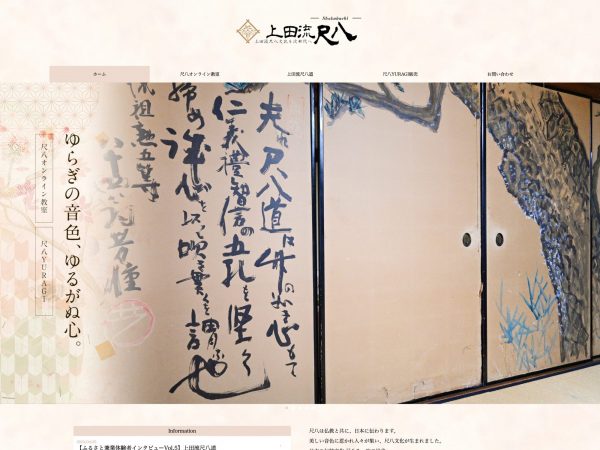 Shakuhachi
上田流尺八
ホーム
尺八オンライン教室
上田流尺八道
尺八YURAGI販売
お問い合わせ
ゆらぎの音色、ゆるがぬ心。
尺八オンライン教室
尺八YURAGI
夫れ尺八道は竹の如き心もて
仁義禮智信の五孔を堅く
締め誠心を以て吹き貫くを謂ふ也
流祖勲五等
Information
【ふるさと兼業体験者インタビューVol.5】上田流尺八道
尺八は仏教と共に、日本に伝わります。
美しい音色に惹かれ人々が集い、尺八文化が生まれました。